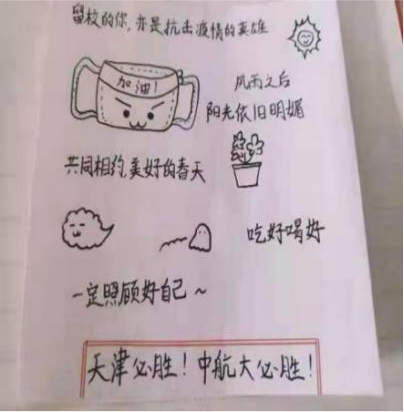 留校的你,亦是抗击疫情的英雄
加油!
风雨之后
阳光依旧明媚
共同相约,美好的春天
吃好喝好
一定照顾好自己~
天津必胜!中航大必胜!